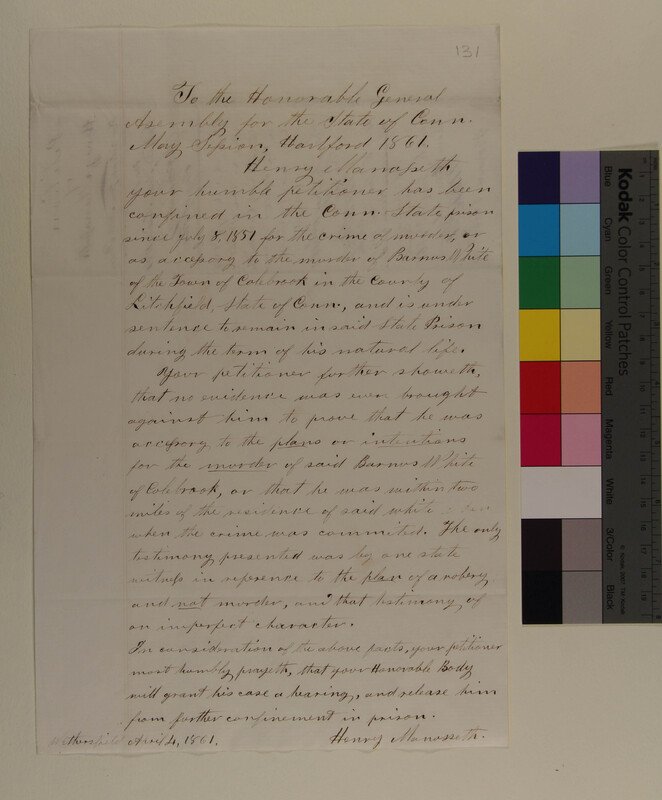 131
To the Honorable General
Asembly for the State of Conn.
May Session, Hartford 1861.
Henry Manasseth
your humble petitioner has been
confined in the Conn. State prison
since July 8, 1851 for the crime of murder, or
as accessory to the murder of Barnus White
of the Town of Colebrook in the County of
Litchfield, State of Conn, and is under
sentence to remain in said State Prison
during the term of his natural life.
Your petitioner further showeth,
that no evidence was ever brought
against him to prove that he was
accessory to the plans or intentions
for the murder of said Barnus White
of Colebrook, or that he was within two
miles of the residence of said white
when the crime was commited. The only
testimony presented was by one state
witness in reference to the plan of a robery
and not murder, and that testimony of
an imperfect character.
In consideration of the above facts, your petitioner
most humbly prayeth, that your Honorable Body
will grant his case a hearing, and release him
from further confinement in prison.
Wethersfield April 4, 1861. Henry Manasseth.
Kodak Color Control Patches
Blue
Cyan
Green
Yellow
Red
Magenta
White
3/Color
Black